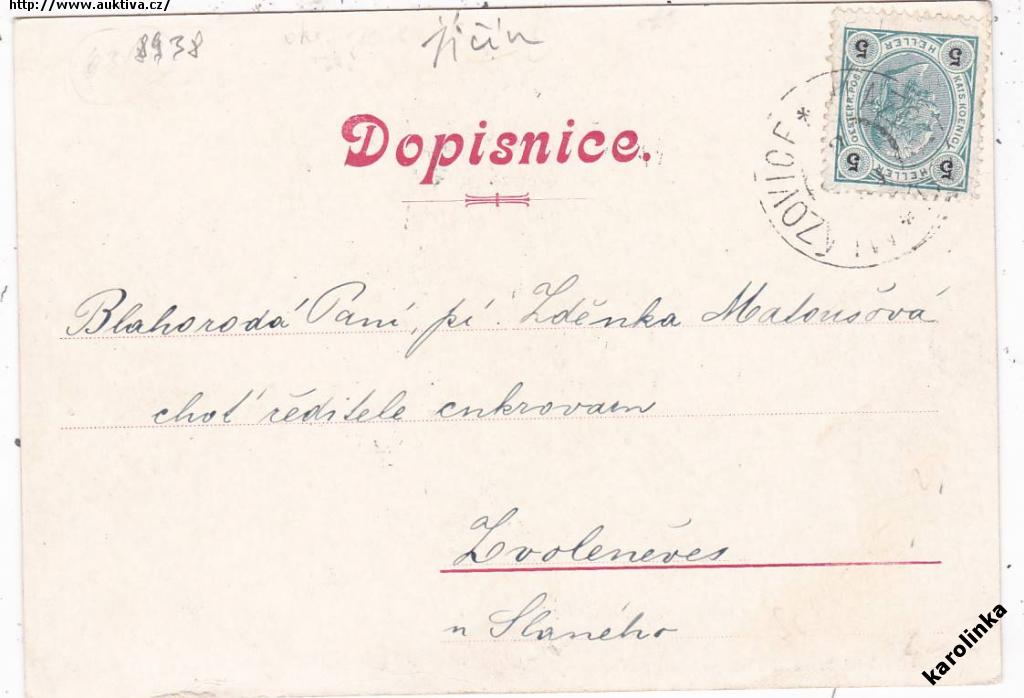 http://www.auktiva.cz/
8938
Jičín
5 HELLER 5
OESTERR. POST
KAIS. KOENIGL
5 HELLER 5
Dopisnice.
Blahorodá Paní, pí. Zděnka Matoušová
choť ředitele cukrovaru
Zvoleněves
u Slaného
karolinka